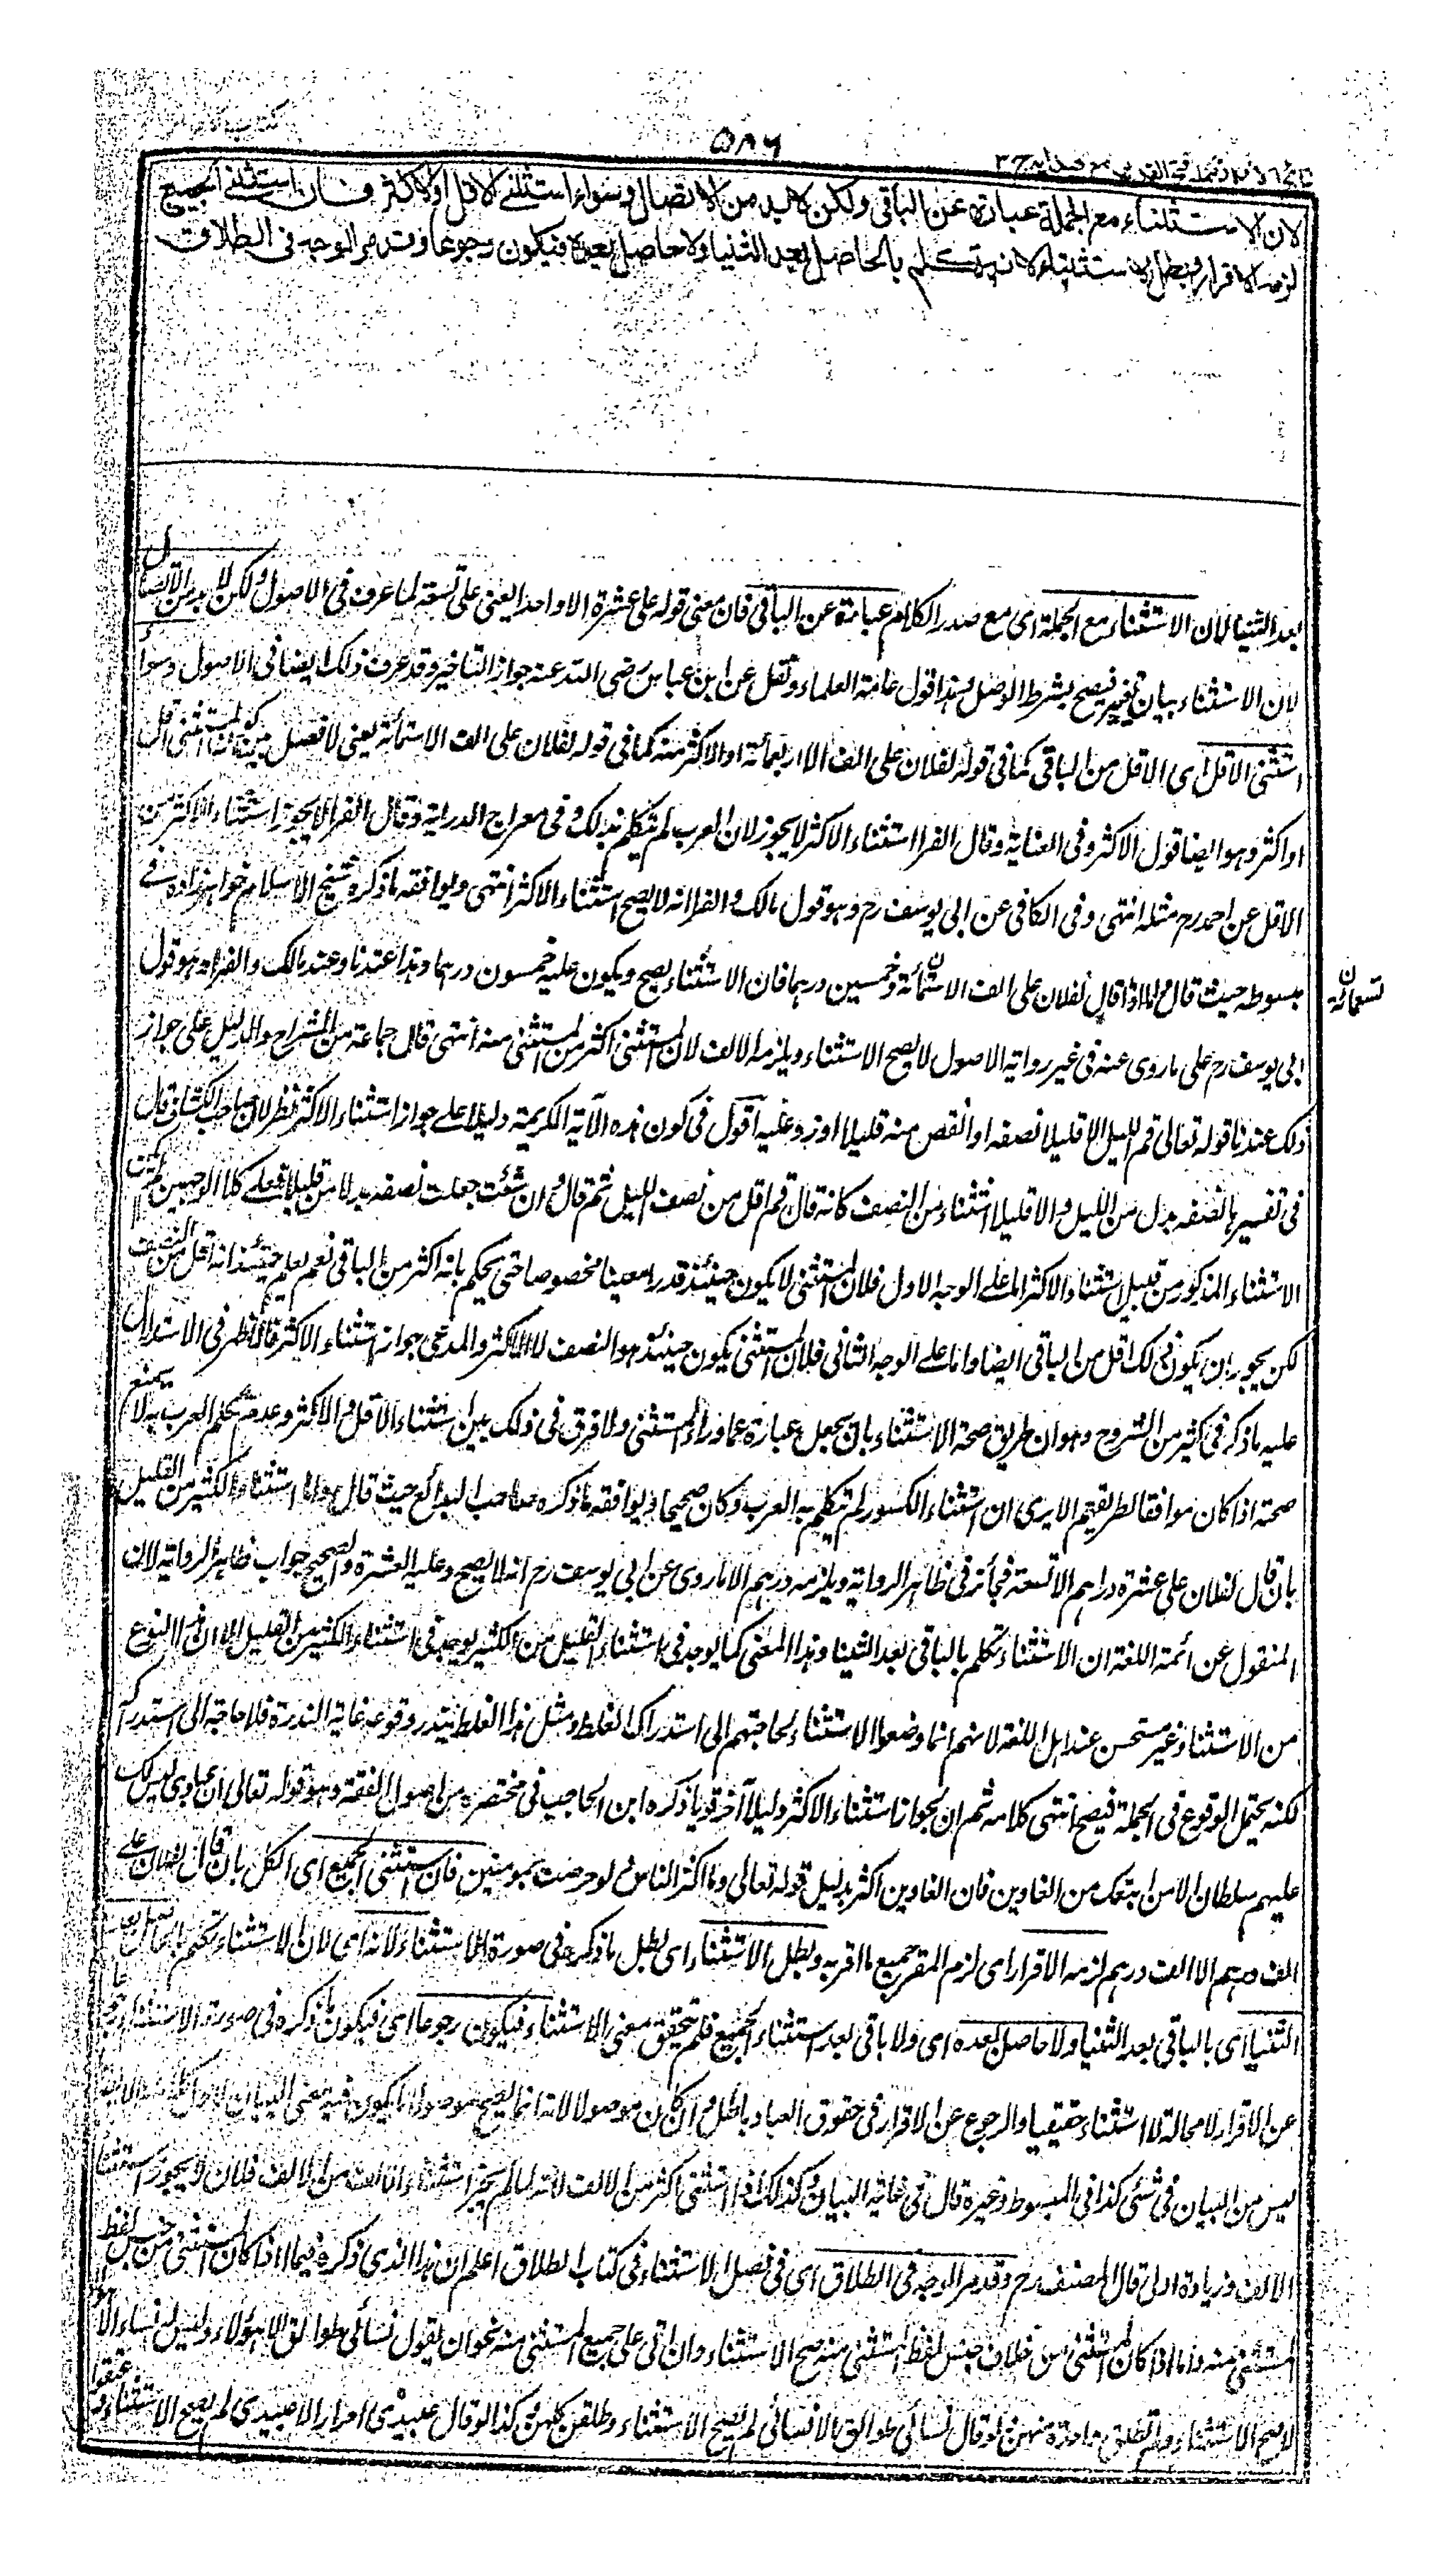 ٥٨٦
لان الاستثناء مع الجملة عبارة عن الباقي ولكن لابد من الاتصال وسواء استثنى الاقل او الاكثر فان استثنى الجميع
لزمه الاقرار وبطل الاستثناء لانه تكلم بالحاصل بعد الثنيا ولا حاصل بعده فيكون رجوعا وقد مر الوجه في الطلاق
بعد الثنيا لان الاستثناء مع الجملة اى مع صدر الكلام عبارة عن الباقي فان معنى قوله على عشرة الا واحدا يعنى على تسعة لما عرف فى الاصول ولكن لا بد من الاتصال
لان الاستثناء بيان تغيير فيصح بشرط الوصل وهذا قول عامة العلماء ونقل عن ابن عباس رضى الله عنه جواز التاخير وقد عرف ذلك ايضا فى الاصول وسواء
استثنى الاقل اى الاقل من الباقى كما فى قوله لفلان على الف الا اربعمائة او الاكثر منه كما فى قوله لفلان على الف الا ستمائة يعنى لا فصل بين كون المستثنى اقل
او اكثر وهو ايضا قول الاكثر وفى العناية وقال الفرا استثناء الاكثر لا يجوز لان العرب لم تتكلم بذلك وفى معراج الدراية وقال الفرا لا يجوز استثناء الاكثر من
الاقل عن احمد رح مثله انتهى وفى الكافى عن ابى يوسف رح وهو قول مالك والفرا انه لا يصح استثناء الاكثر انتهى ويوافقه ما ذكره شيخ الاسلام خواهر زاده فى
مبسوطه حيث قال واما اذا قال لفلان على الف الا ستمائة وخمسين درهما فان الاستثناء يصح ويكون عليه خمسون درهما وهذا عندنا وعند مالك والفرا وهو قول
تسعمائة
ابى يوسف رح على ما روى عنه فى غير رواية الاصول لا يصح الاستثناء ويلزمه الالف لان المستثنى اكثر من المستثنى منه انتهى قال جماعة من الشراح والدليل على جواز
ذلك عندنا قوله تعالى قم الليل الا قليلا نصفه او انقص منه قليلا او زد عليه اقول فى كون هذه الآية الكريمة دليلا على جواز استثناء الاكثر نظر لان صاحب الكشاف قال
فى تفسيرها نصفه بدل من الليل والا قليلا استثناء من النصف كانه قال قم اقل من نصف الليل ثم قال وان شئت جعلت نصفه بدلا من قليلا فعلى كلا الوجهين لم يكن
الاستثناء المذكور من قبيل استثناء الاكثر اما على الوجه الاول فلان المستثنى لا يكون حينئذ قدرا معينا مخصوصا حتى يحكم بانه اكثر من الباقى نعم يعلم حينئذ انه اقل من النصف
لكن يجوز ان يكون ذلك اقل من الباقى ايضا واما على الوجه الثانى فلان المستثنى يكون حينئذ هو النصف لا الاكثر والمدعى جواز استثناء الاكثر فالاظهر فى الاستدلال
عليه ما ذكر فى كثير من الشروح وهو ان طريق صحة الاستثناء بان يجعل عبارة عما وراء المستثنى ولا فرق فى ذلك بين استثناء الاقل والاكثر وعدم تكلم العرب به لا يمنع
صحته اذا كان موافقا لطريقهم الا يرى ان استثناء الكسور لم تتكلم به العرب وكان صحيحا ويوافقه ما ذكره صاحب البدائع حيث قال واما استثناء الكثير من القليل
بان قال لفلان على عشرة دراهم الا تسعة فجائز فى ظاهر الرواية ويلزمه درهم الا ما روى عن ابى يوسف رح انه لا يصح وعليه العشرة والصحيح جواب ظاهر الرواية لان
المنقول عن ائمة اللغة ان الاستثناء تكلم بالباقى بعد الثنيا وهذا المعنى كما يوجد فى استثناء القليل من الكثير يوجد فى استثناء الكثير من القليل الا ان هذا النوع
من الاستثناء غير مستحسن عند اهل اللغة لانهم انما وضعوا الاستثناء لحاجتهم الى استدراك الغلط ومثل هذا الغلط يندر وقوعه غاية الندرة فلا حاجة الى استدراكه
لكنه يحتمل الوقوع فى الجملة فيصح انتهى كلامه ثم ان لجواز استثناء الاكثر دليلا آخر قويا ذكره ابن الحاجب فى مختصره من اصول الفقه وهو قوله تعالى ان عبادى ليس لك
عليهم سلطان الا من اتبعك من الغاوين فان الغاوين اكثر بدليل قوله تعالى وما اكثر الناس ولو حرصت بمومنين فان استثنى الجميع اى الكل بان قال لفلان على
الف درهم الا الف درهم لزمه الاقرار اى لزم المقر جميع ما اقر به وبطل الاستثناء اى بطل ما ذكره فى صورة الاستثناء لانه اى لان الاستثناء تكلم بالحاصل بعد
الثنيا اى بالباقى بعد الثنيا ولا حاصل بعده اى ولا باقى بعد استثناء الجميع فلم يتحقق معنى الاستثناء فيكون رجوعا اى فيكون ما ذكره فى صورة الاستثناء رجوعا
عن الاقرار لا محالة لا استثناء حقيقيا والرجوع عن الاقرار فى حقوق العباد باطل وان كان موصولا لانه انما يصح موصولا ما يكون فيه معنى البيان
ليس من البيان فى شئى كذا فى المبسوط وغيره قال فى غاية البيان وكذلك اذا استثنى اكثر من الالف لانه لما لم يجز استثناء الالف من الالف فلان لا يجوز استثناء
الالف وزيادة اولى قال المصنف رح وقد مر الوجه فى الطلاق اى فى فصل الاستثناء فى كتاب الطلاق اعلم ان هذا الذى ذكره فيما اذا كان المستثنى من جنس لفظ
المستثنى منه واما اذا كان المستثنى من خلاف جنس لفظ المستثنى منه صح الاستثناء وان اتى على جميع المستثنى منه نحو ان يقول نسائى طوالق الا هؤلاء وليس له نساء الا
لا يصح الاستثناء ولم تطلق واحدة منهن ولو قال نسائى طوالق الا نسائى لم يصح الاستثناء وطلقن كلهن وكذا لو قال عبيدى احرار الا عبيدى لم يصح الاستثناء وعتقوا